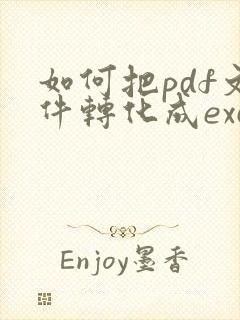 如何把pdf文
件轉化成exc
Enjoy墨香